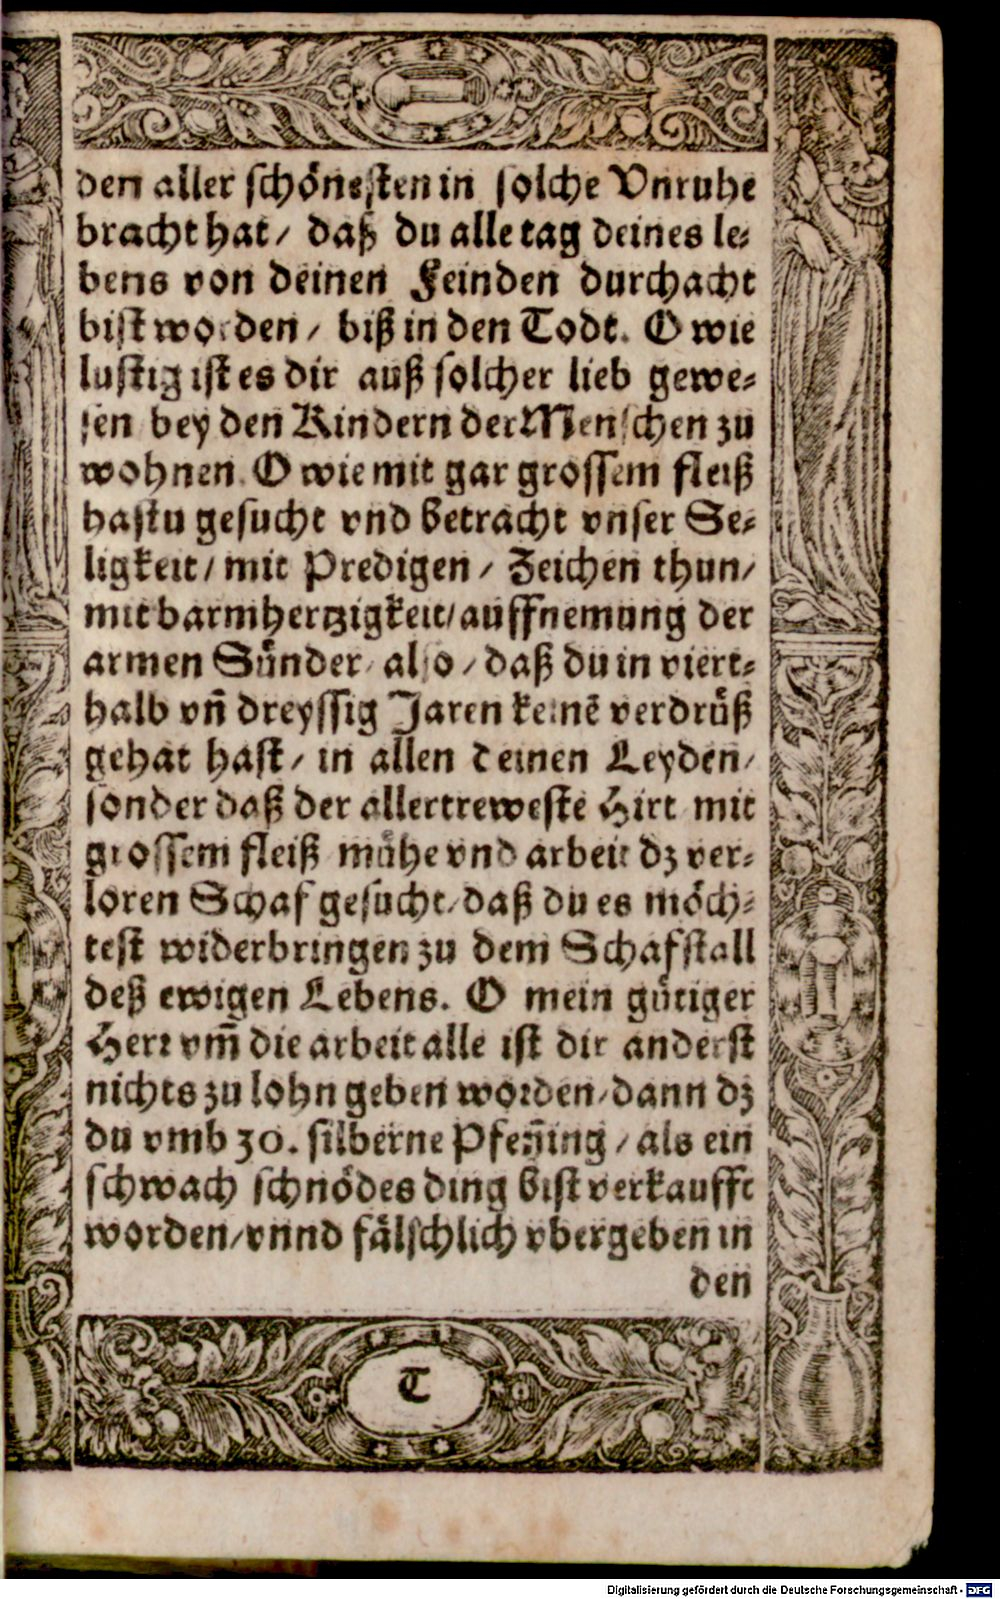 den aller schönesten in solche Vnruhe
bracht hat / daß du alle tag deines le⸗
bens von deinen Feinden durchacht
bist worden / biß in den Todt. O wie
lustig ist es dir auß solcher lieb gewe⸗
sen bey den Kindern der Menschen zu
wohnen. O wie mit gar grossem fleiß
hastu gesucht vnd betracht vnser Se⸗
ligkeit / mit Predigen / Zeichen thun /
mit barmhertzigkeit / auffnemung der
armen Sünder / also / daß du in viert⸗
halb vñ dreyssig Jaren keinē verdrüß
gehat hast / in allen deinen Leyden /
sonder daß der allertreweste Hirt mit
grossem fleiß mühe vnd arbeit dz ver⸗
loren Schaf gesucht / daß du es möch⸗
test widerbringen zu dem Schafstall
deß ewigen Lebens. O mein gütiger
Herr vm̃ die arbeit alle ist dir anderst
nichts zu lohn geben worden / dann dz
du vmb 30. silberne Pfeñing / als ein
schwach schnödes ding bist verkaufft
worden / vnnd fälschlich vbergeben in
den
T
Digitalisierung gefördert durch die Deutsche Forschungsgemeinschaft - DFG